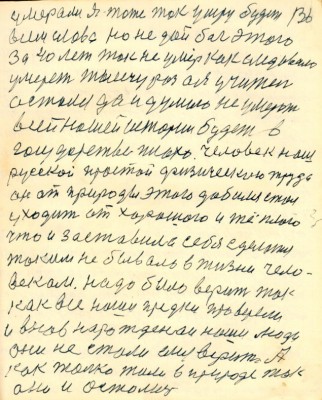 умерали я тоже так умру будет 136
всем слава но не дай бог этого
За 40 лет так не умер как следовало
умереть тысячу раз а я учител
остался да и думаю не умереть
всей нашей истории будет в
государстве плохо. Человек наш
русской простой физическою труда
он от природы этого добился стал
уходить от хорошого и тёплого
что и заставило себя сделать
таким не бывало в жизни чело-
веком. надо было верить так
как все наши предки провели
и вновь нарожденаи наши люди
они не стали ему верить. А
как только тили в природе так
оно и осталис